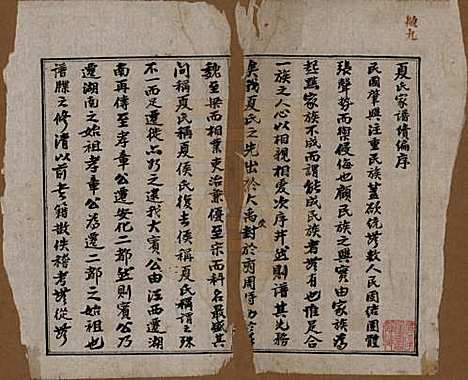 夏氏家譜續偏序
民國肇興注重民族蓋欲統數人民團結團體
張聲勢而禦侵侮也顧民族之興實由家族為
起點家族不成而謂能成民族者尠有也惟足合
一族之人心以相親相愛次序井然則譜其先務
矣我夏氏之先出於大禹對於商周
魏至梁而相業吏治兼優至宋而科名最盛其
間稱夏氏稱夏侯氏復去侯稱夏氏稱謂之殊
不一而足遷徙占籍之途我大賓公由江西遷湖
南再傳至孝章公遷安化二都然則賓公乃
遷湖南之始祖孝章公為遷二都之始祖也
譜牒之修清以前古籍散佚稽考從